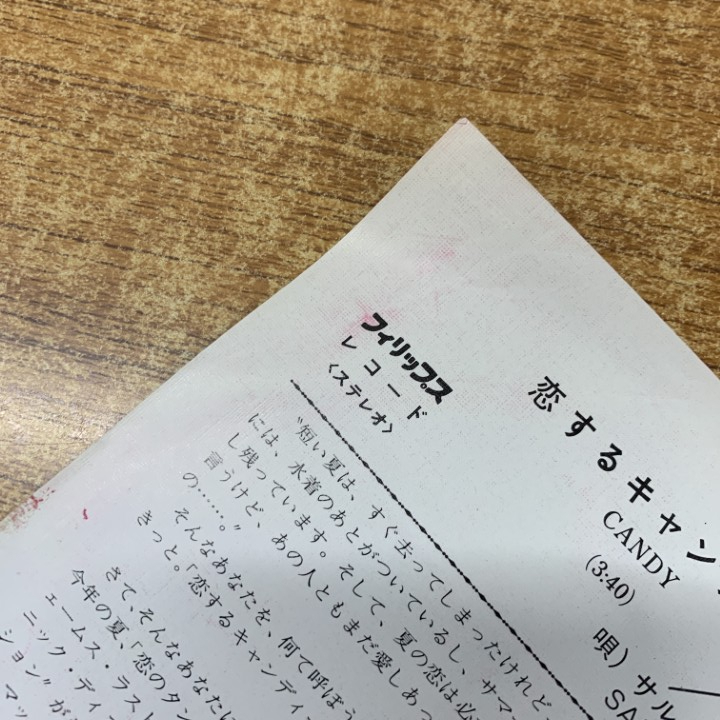 フィリップス
レコード
〈ステレオ〉
恋するキャン
CANDY
(3:40)
唄)サル
SA
“短い夏は、すぐ去ってしまったけれど
には、水着のあとがついているし、サマ
し残っています。そして、夏の恋は必
言うけど、あの人ともまだ愛しあっ
の……。”
そんなあなたを、何て呼ぼう
きっと。「恋するキャンディ
さて、そんなあなたに
今年の夏、「恋のタン
ェームス・ラスト
ニック・ディ
ション”が
マッ